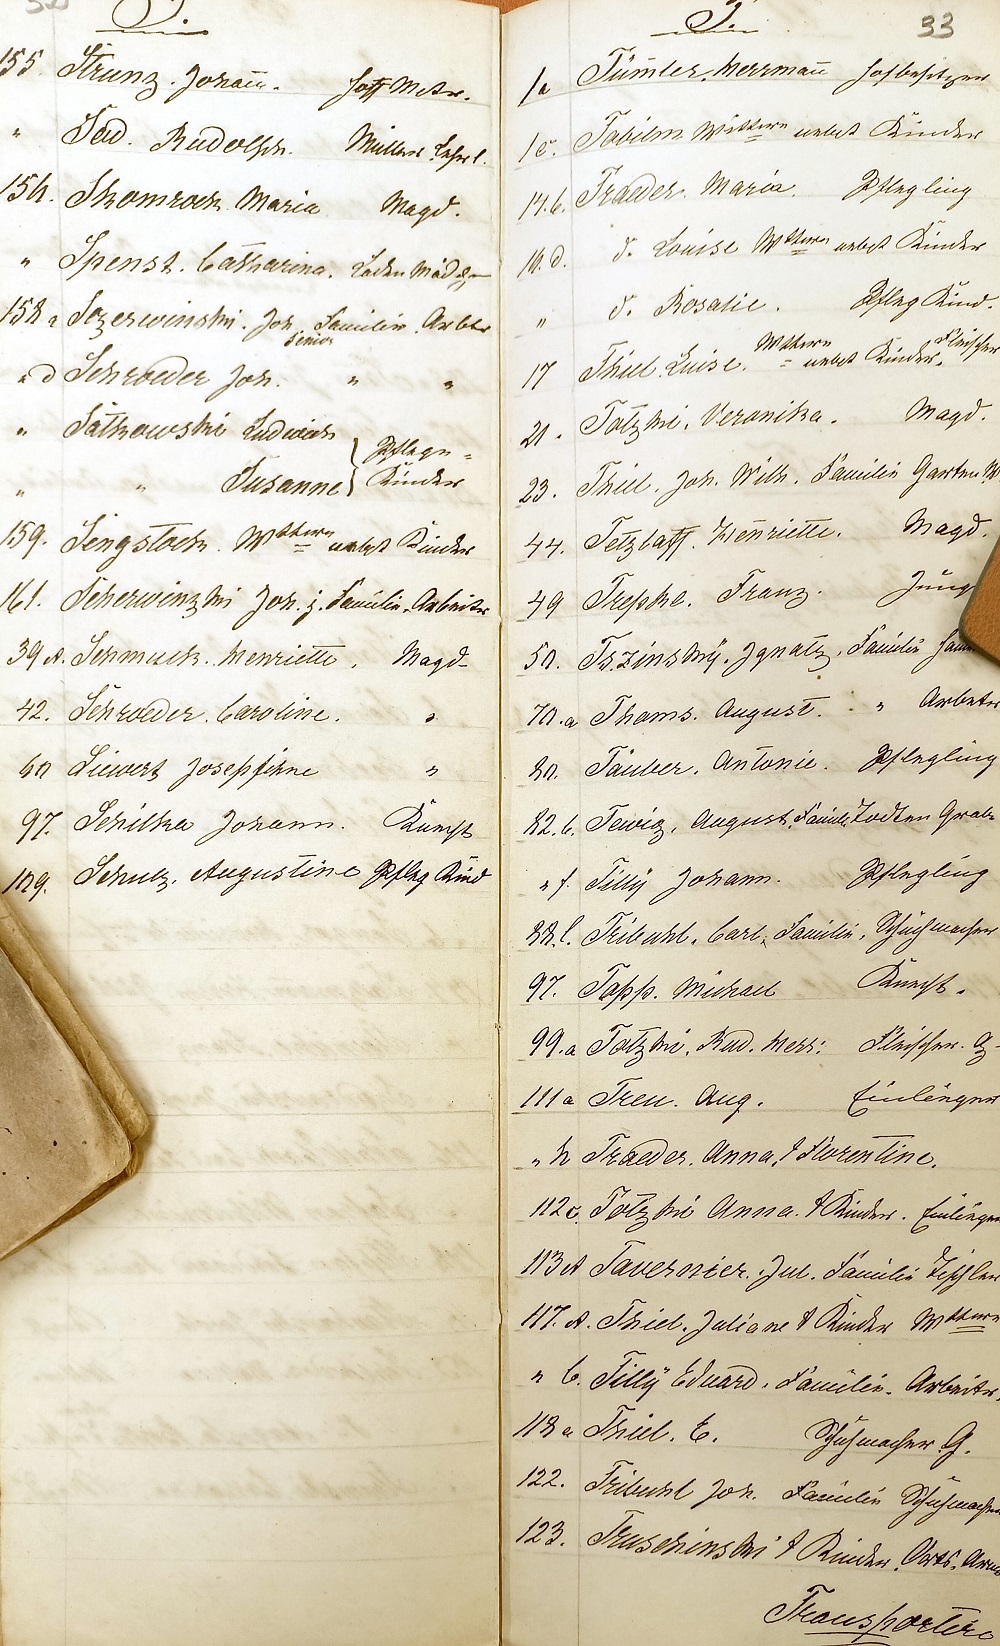 S.
155. Strunz. Johann.
" Sad. Rudolph. Müller Lehrl.
156. Shomroch Maria Magd.
" Spenst. Catharina. Laden Mädch
158 a Sozerwinski. Joh. Familie. Arbtr
senior
" d Schroeder Joh. " "
" Satkowski Ludwich
" " Susanne } Pflege-Kinder
159. Sengstock. Wittwe nebst Kinder
161. Scherwinzki Joh. j. Familie. Arbeiter
39 A. Schmuck. Henriette. Magd
42. Schroeder. Caroline. "
60 Siewert Josephine "
97. Schilka Johann. Knecht
109. Schulz. Augustine Pfleg Kind
T. 33
1a Tümler. Herrmann Hofbesitzer
1c. Wittwe nebst Kinder
14.b. Traeder. Maria. Pflegling
16.d. d. Louise Wittwe nebst Kinder
" d. Rosalie. Pfleg Kind.
17 Thiel. Luise. Wittwe nebst Kinder. Fleischer
21. Totzki. Veronika. Magd.
23. Thiel. Joh. Wilh. Familie Garten
44. Tetzlaff. Henriette. Magd.
49 Trepke. Franz. Jung
50. Ignatz. Familie
70.a Thoms. August. " Arbeiter
80. Täuber. Antonie. Pflegling
82.b. Tewiz. August. Famil. Todten Grab
" f. Tilly Johann. Pflegling
88.l. Tribuhl. Carl. Familie. Schuhmacher
97. Topp. Michael Knecht.
99.a Totzki. Rud. Herr: Fleischer. G
111a Treu. Aug. Einlieger
" h Traeder. Anna. & Florentine.
112c. Totzki Anna. & Kinder. Einlieger
113A Tavernier. Jul. Familie Tischler
117.A. Thiel. Juliane & Kinder Wittwe
" b. Tilly Eduard. Familie. Arbeiter.
118a Thiel. E. Schuhmacher G.
122. Tribuhl Joh. Familie Schuhmacher
123. Truschinski & Kinder. Orts. Arme
Transportire